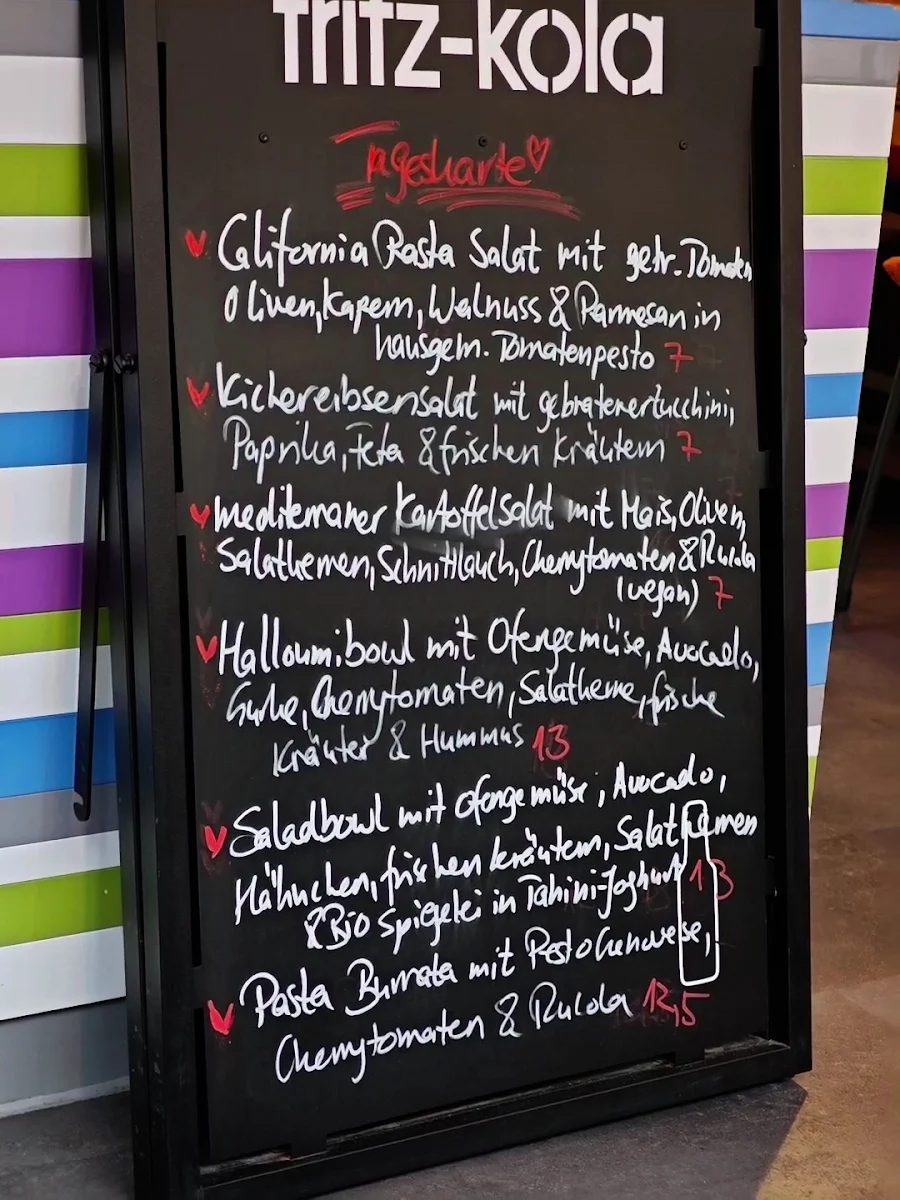 fritz-kola
Tageskarte
California Pasta Salat mit getr. Tomaten
Oliven, Kapern, Walnuss & Parmesan in
hausgem. Tomatenpesto 7
Kichererbsensalat mit gebratener Zucchini,
Paprika, Feta & frischen Kräutern 7
mediterraner Kartoffelsalat mit Mais, Oliven,
Salatkernen, Schnittlauch, Cherrytomaten & Rucola
(vegan) 7
Halloumibowl mit Ofengemüse, Avocado,
Gurke, Cherrytomaten, Salatkerne, frische
Kräuter & Hummus 13
Saladbowl mit Ofengemüse, Avocado,
Hähnchen, frischen Kräutern, Salatkernen
& Bio Spiegelei in Tahini-Joghurt 13
Pasta Burrata mit Pesto Genovese,
Cherrytomaten & Rucola 12,5